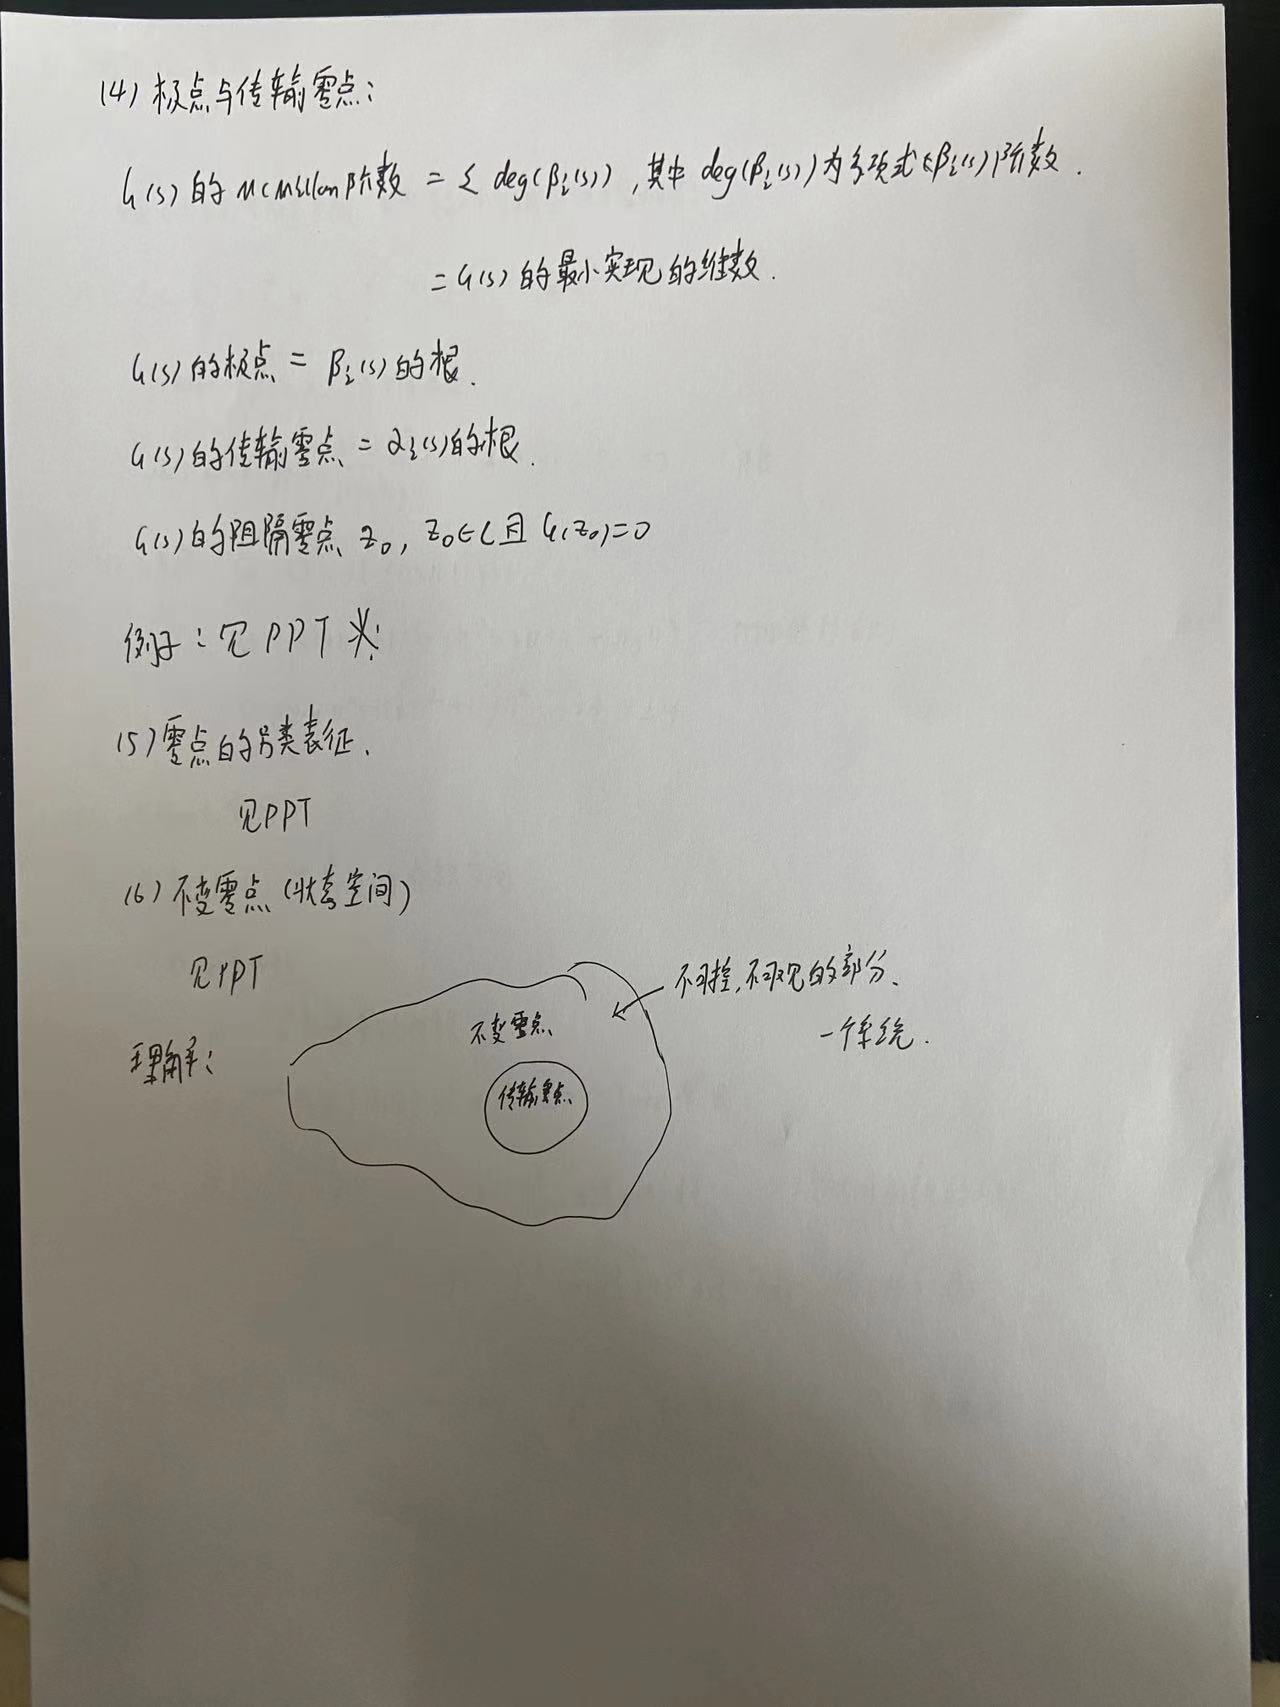 (4) 极点与传输零点:
G(s) 的 McMillan 阶数 = Σ deg(βi(s)), 其中 deg(βi(s)) 为多项式 βi(s) 阶数.
= G(s) 的最小实现的维数.
G(s) 的极点 = βi(s) 的根.
G(s) 的传输零点 = αi(s) 的根.
G(s) 的阻隔零点 z0, z0∈C 且 G(z0)=0
例子: 见 PPT
(5) 零点的另类表征.
见PPT
(6) 不变零点 (状态空间)
见PPT
不可控,不可观的部分.
不变零点
一个系统.
理解:
传输零点